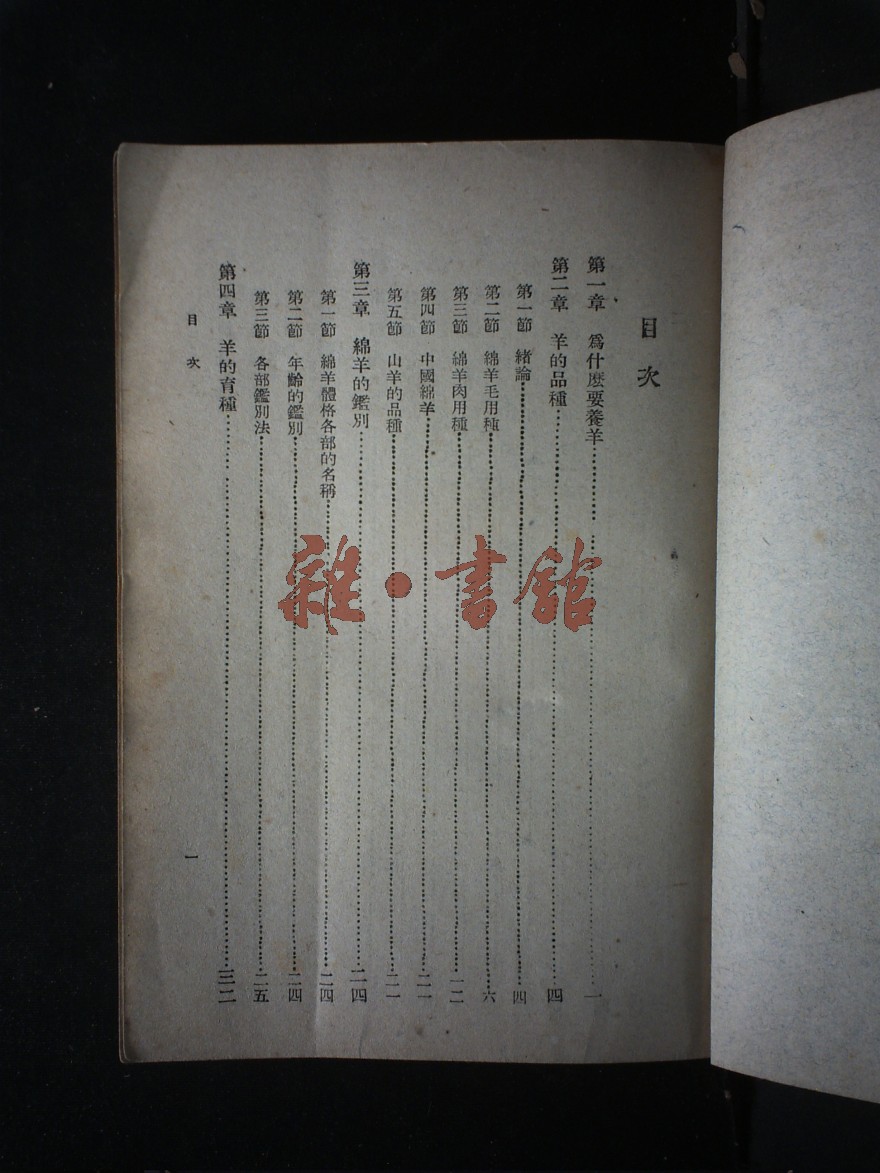 目次
第一章 爲什麽要養羊 一
第二章 羊的品種 四
第一節 緒論 四
第二節 綿羊毛用種 六
第三節 綿羊肉用種 一二
第四節 中國綿羊 二一
第五節 山羊的品種 二一
第三章 綿羊的鑑別 二四
第一節 綿羊體格各部的名稱 二四
第二節 年齡的鑑別 二四
第三節 各部鑑別法 二五
第四章 羊的育種 三二
目次
一
雜·書館